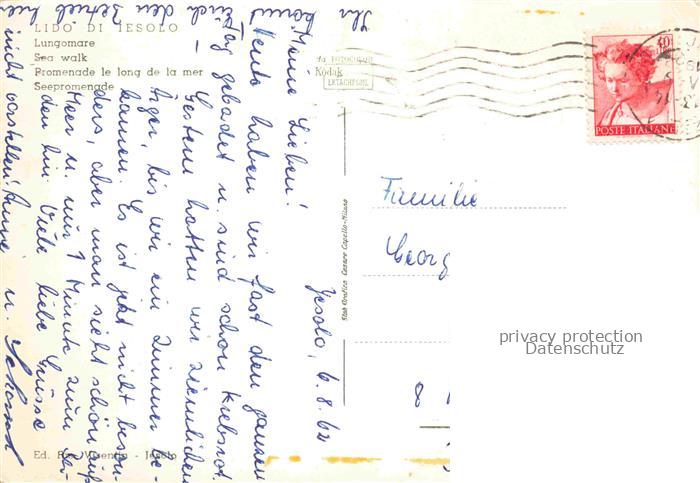 LIDO DI IESOLO
Lungomare
Sea walk
Promenade le long de la mer
Seepromenade
da FOTOCOLOR
Kodak
EKTACHROME
40
POSTE ITALIANE
Jesolo, 6.8.62
Meine Lieben!
Heute haben wir fast den ganzen
Tag gebadet u. sind schon krebsrot.
Gestern hatten wir ziemlichen
Ärger, bis wir ein Zimmer be-
kamen. Es ist jetzt nicht beson-
ders, aber man sieht schön aufs
Meer u. nur 1 Minute zum Ba-
den hin. Viele liebe Grüsse
Anne u.
Ihr könnt euch den Betrieb hier
nicht vorstellen!
Familie
Georg
8
Stab Grafico Cesare Capello-Milano
Ed. Visentin - Jesolo
privacy protection
Datenschutz